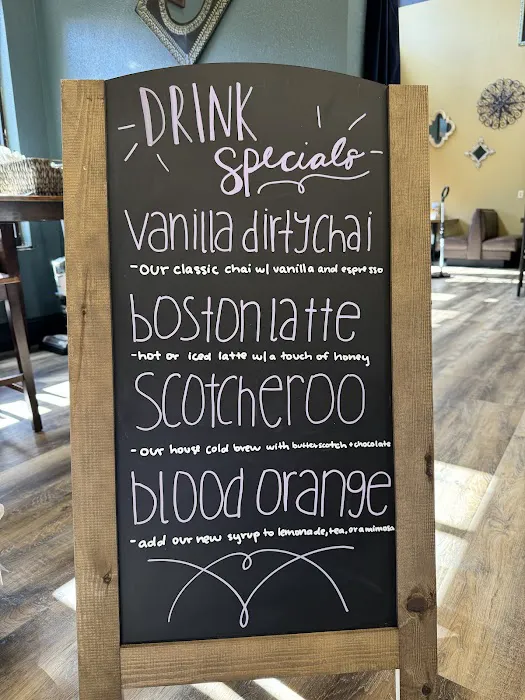 DRINK
specials
vanilla dirty chai
-Our classic chai w/ vanilla and espresso
boston latte
-hot or iced latte w/ a touch of honey
Scotcheroo
-our house cold brew with butterscotch + chocolate
blood orange
-add our new syrup to lemonade, tea, or a mimosa